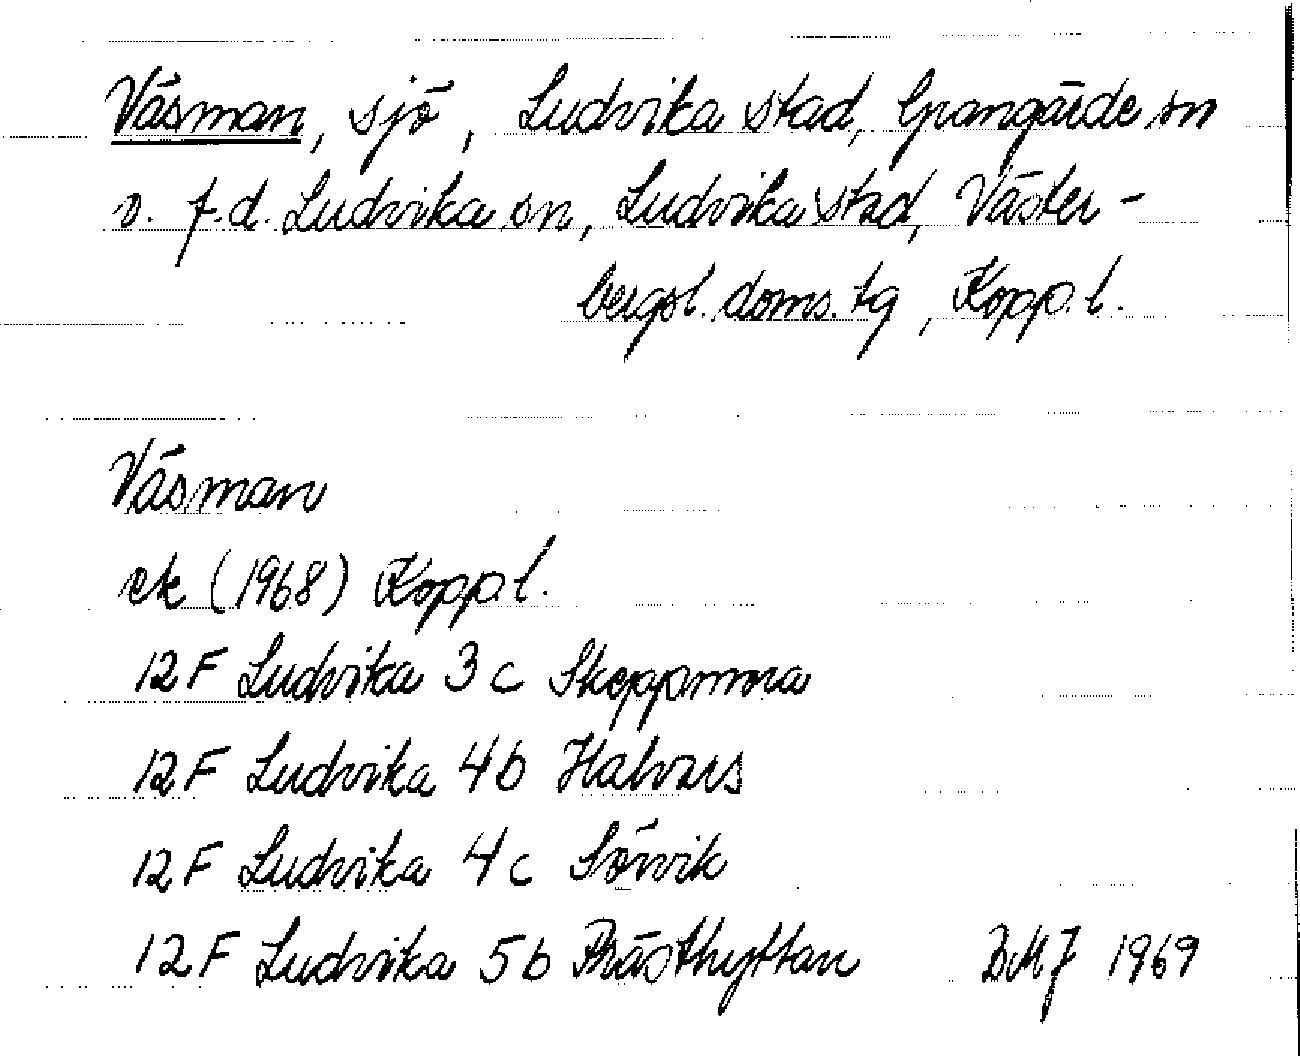 Väsman, sjö, Ludvika stad, Grangärde sn
o. f.d. Ludvika sn, Ludvika stad, Väster-
bergsl. doms. tg, Kopp. l.
Väsman
ek (1968) Kopp. l.
12 F Ludvika 3 c Skeppmora
12 F Ludvika 4 b Halvars
12 F Ludvika 4 c Sörvik
12 F Ludvika 5 b Prästhyttan BMJ 1969